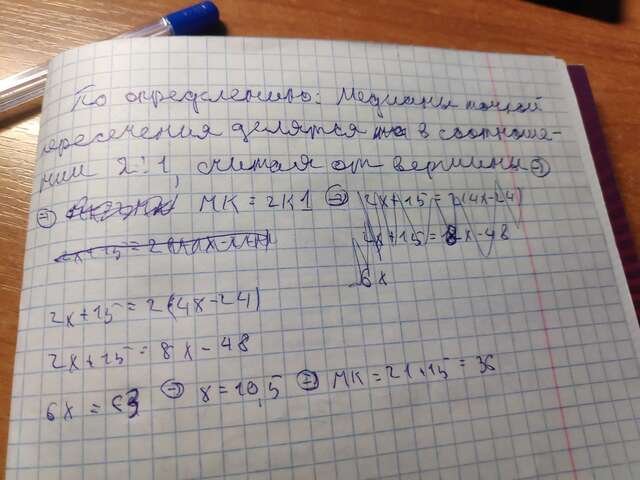 По определению: Медианы точкой
пересечения делятся в соотноше-
нии 2:1, считая от вершины ⇒
⇒ MK = 2K1 ⇒ 2x+15 = 2(4x-24)
2x+15 = 8x-48
6x
2x+15 = 2(4x-24)
2x+15 = 8x-48
6x = 63 ⇒ x = 10,5 ⇒ MK = 21+15 = 36